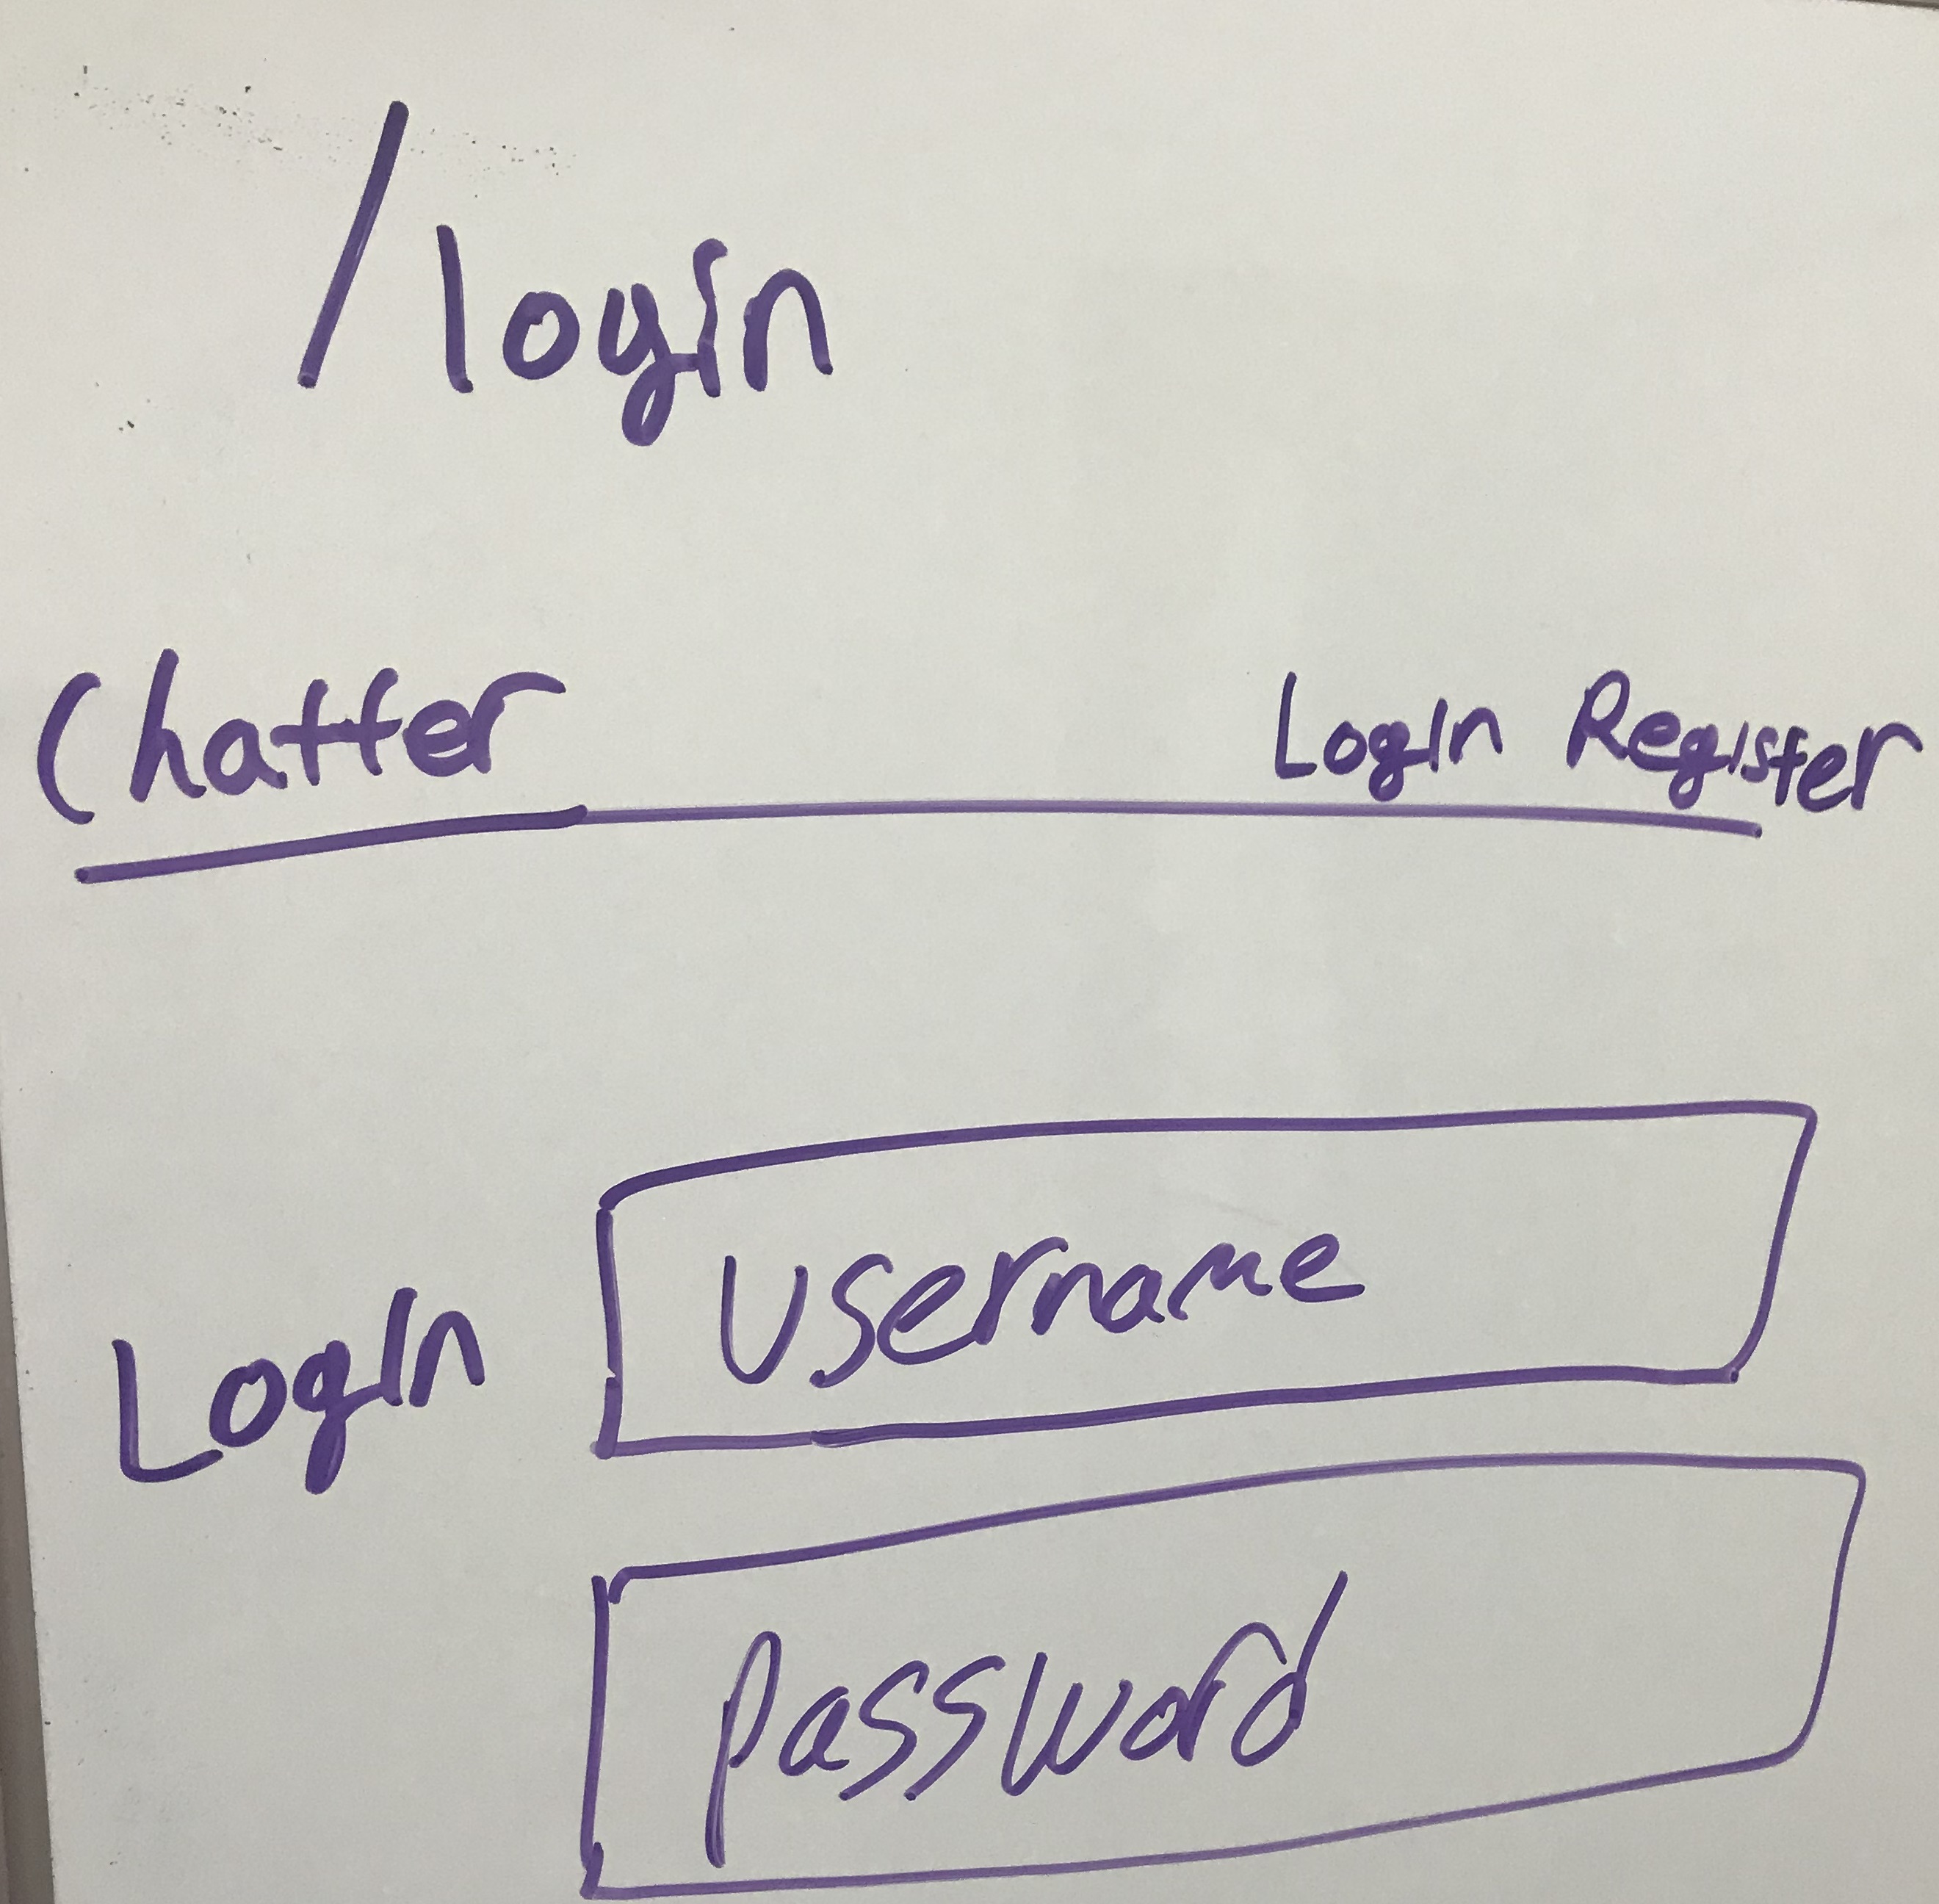 /login
Chatter
Login Register
Login
username
password